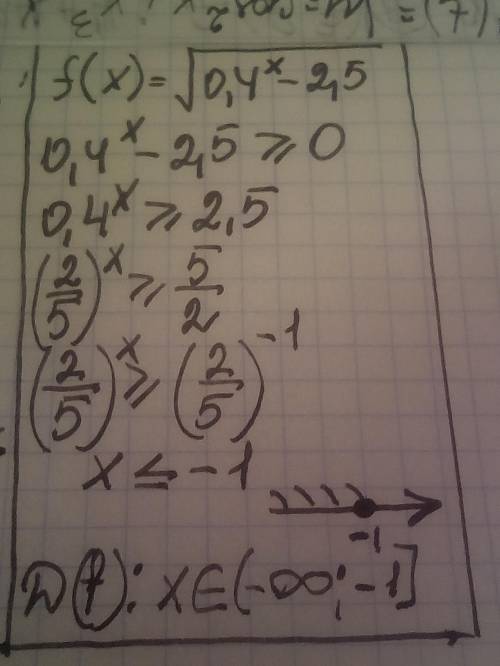 f(x) = √(0,4^x - 2,5)
0,4^x - 2,5 ⩾ 0
0,4^x ⩾ 2,5
(2/5)^x ⩾ 5/2
(2/5)^x ⩾ (2/5)^-1
x ≤ -1
-1
D(f): x∈(-∞; -1]